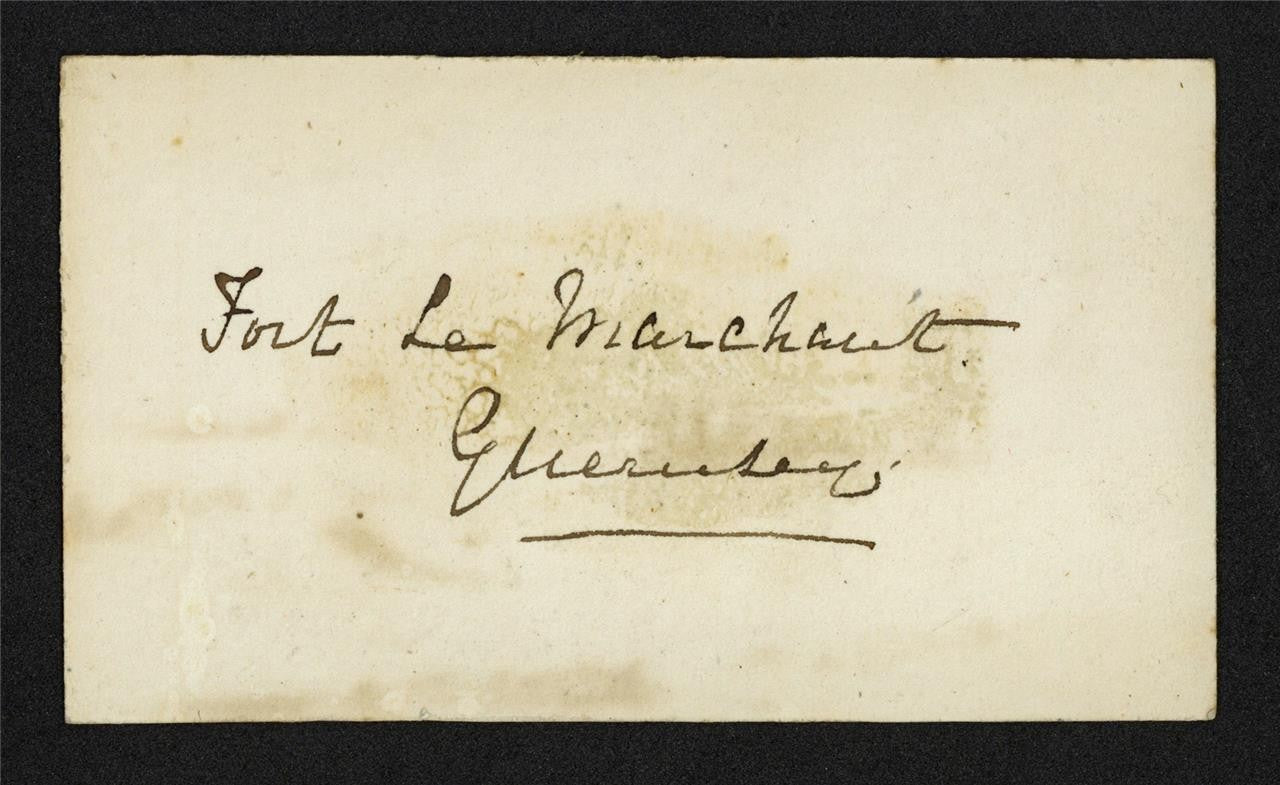 Fort Le Marchant.
Guernsey.